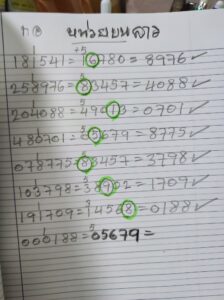 หน่วยบนลาว
181541 = 36780 = 8976 ✓
258976 = 83457 = 4088 ✓
204088 = 49013 = 0701 ✓
480701 = 05679 = 8775 ✓
078775 = 83457 = 3798 ✓
103798 = 38902 = 1709 ✓
191709 = 34568 = 0188 ✓
000188 = 05679 =